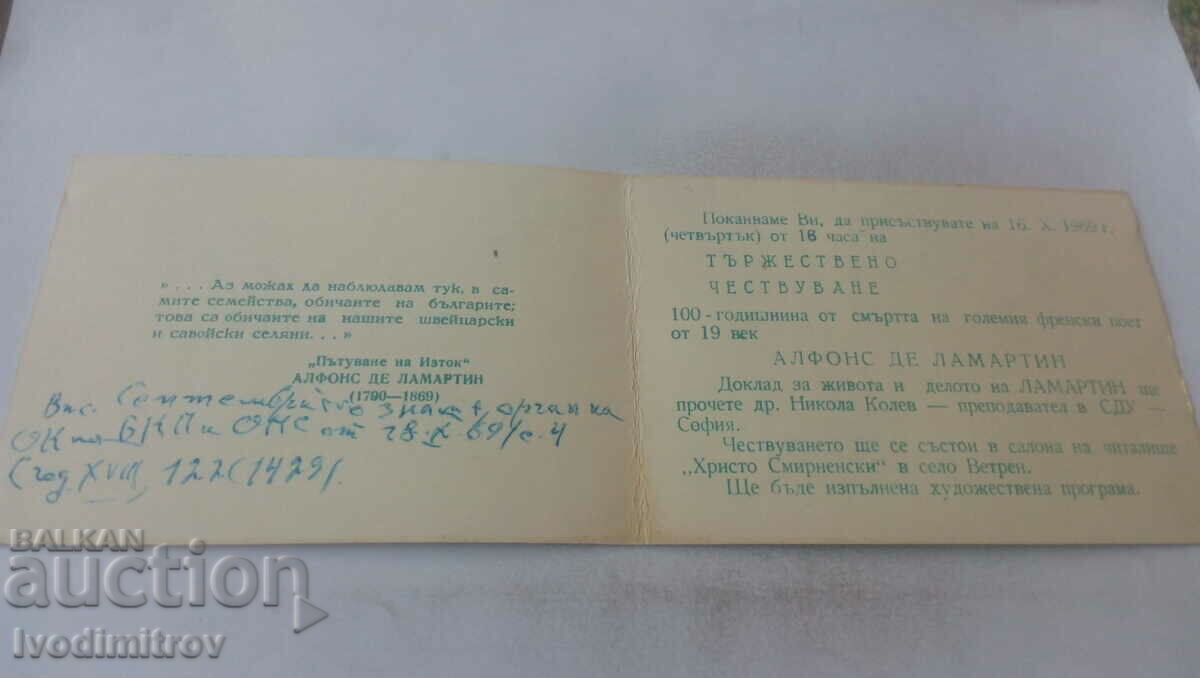 ». . . Аз можах да наблюдавам тук, в са-
мите семейства, обичаите на българите;
това са обичаите на нашите швейцарски
и савойски селяни. . .»
„Пътуване на Изток"
АЛФОНС ДЕ ЛАМАРТИН
(1790—1869)
в-к Септемврийско знаме, орган на
ОК на БКП и ОНС от 28.X.69/с.4
(год. XVIII, 122(1429).
Поканваме Ви, да присъствувате на 16. X. 1969 г.
(четвъртък) от 18 часа на
ТЪРЖЕСТВЕНО
ЧЕСТВУВАНЕ
100-годишнина от смъртта на големия френски поет
от 19 век
АЛФОНС ДЕ ЛАМАРТИН
Доклад за живота и делото на ЛАМАРТИН ще
прочете др. Никола Колев — преподавател в СДУ —
София.
Чествуването ще се състои в салона на читалище
„Христо Смирненски" в село Ветрен.
Ще бъде изпълнена художествена програма.
BALKAN
auction
Ivodimitrov